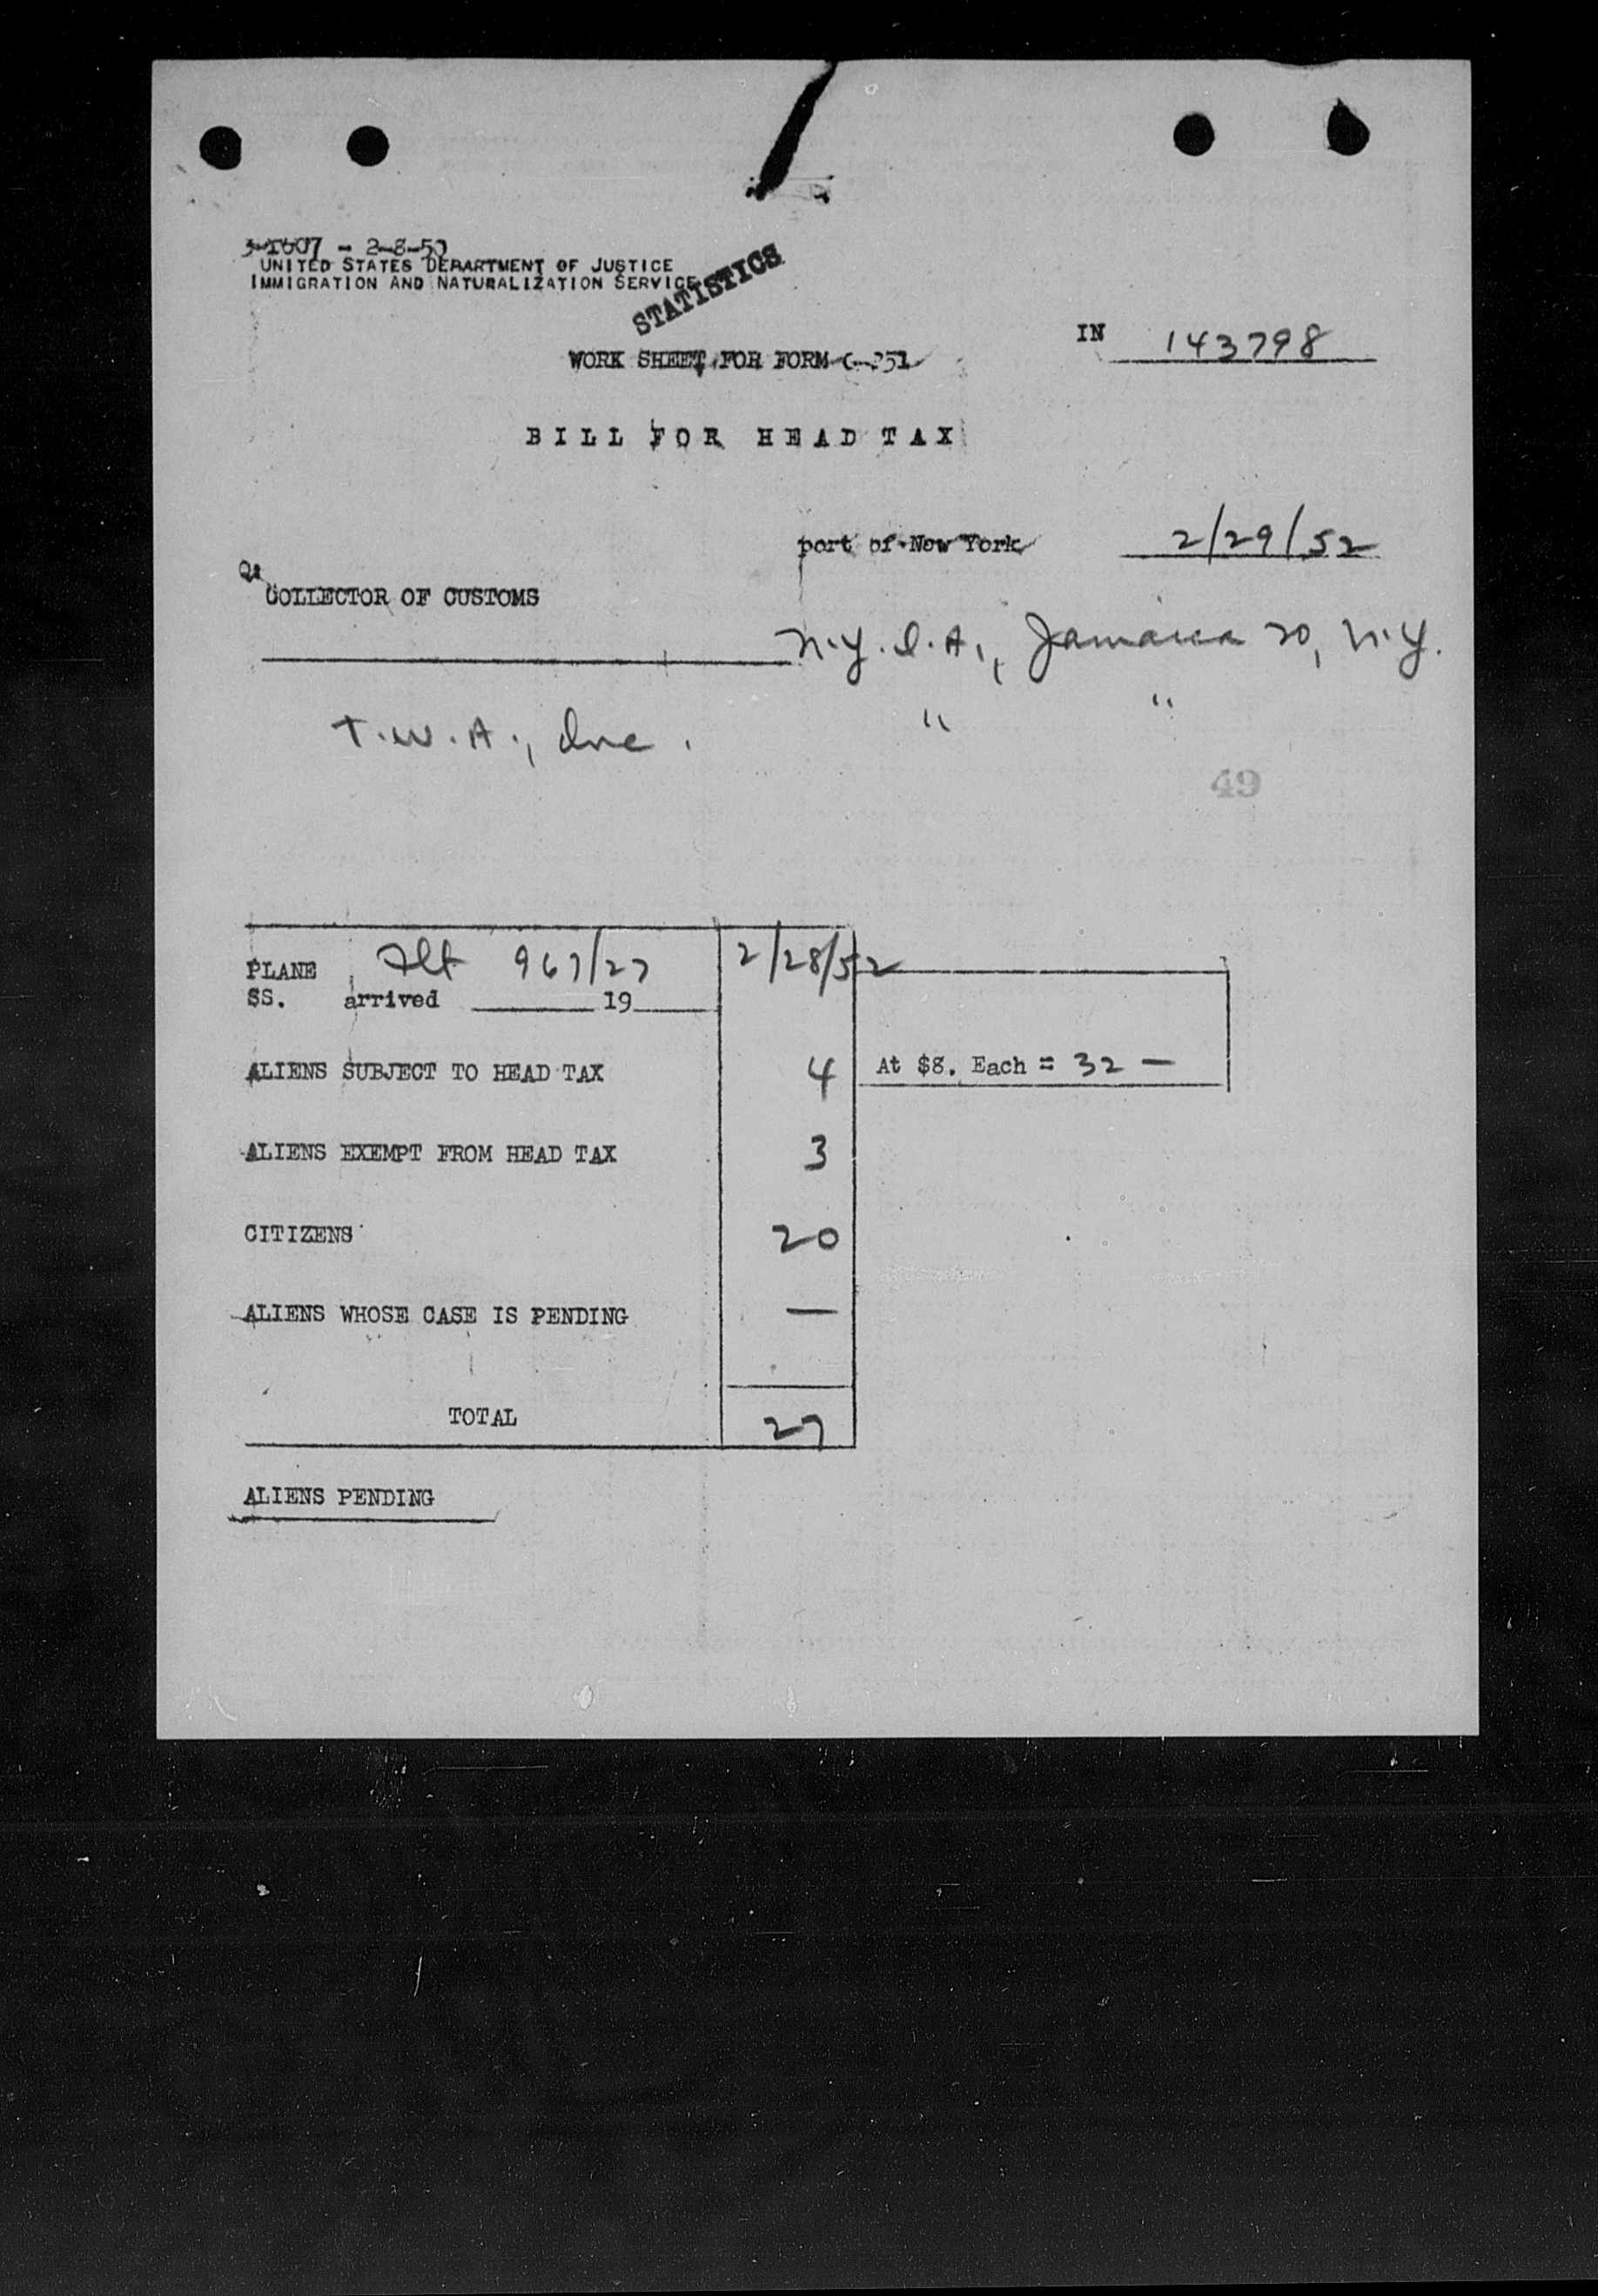 3-1607 - 2-8-50
UNITED STATES DEPARTMENT OF JUSTICE
IMMIGRATION AND NATURALIZATION SERVICE
STATISTICS
IN 143798
WORK SHEET FOR FORM G-251
BILL FOR HEAD TAX
port of New York 2/29/52
COLLECTOR OF CUSTOMS
N.Y.I.A., Jamaica 20, N.Y.
T.W.A., Inc. " "
49
PLANE Flt 967/27 2/28/52
SS. arrived 19
ALIENS SUBJECT TO HEAD TAX 4 At $8. Each = 32 —
ALIENS EXEMPT FROM HEAD TAX 3
CITIZENS 20
ALIENS WHOSE CASE IS PENDING —
TOTAL 27
ALIENS PENDING